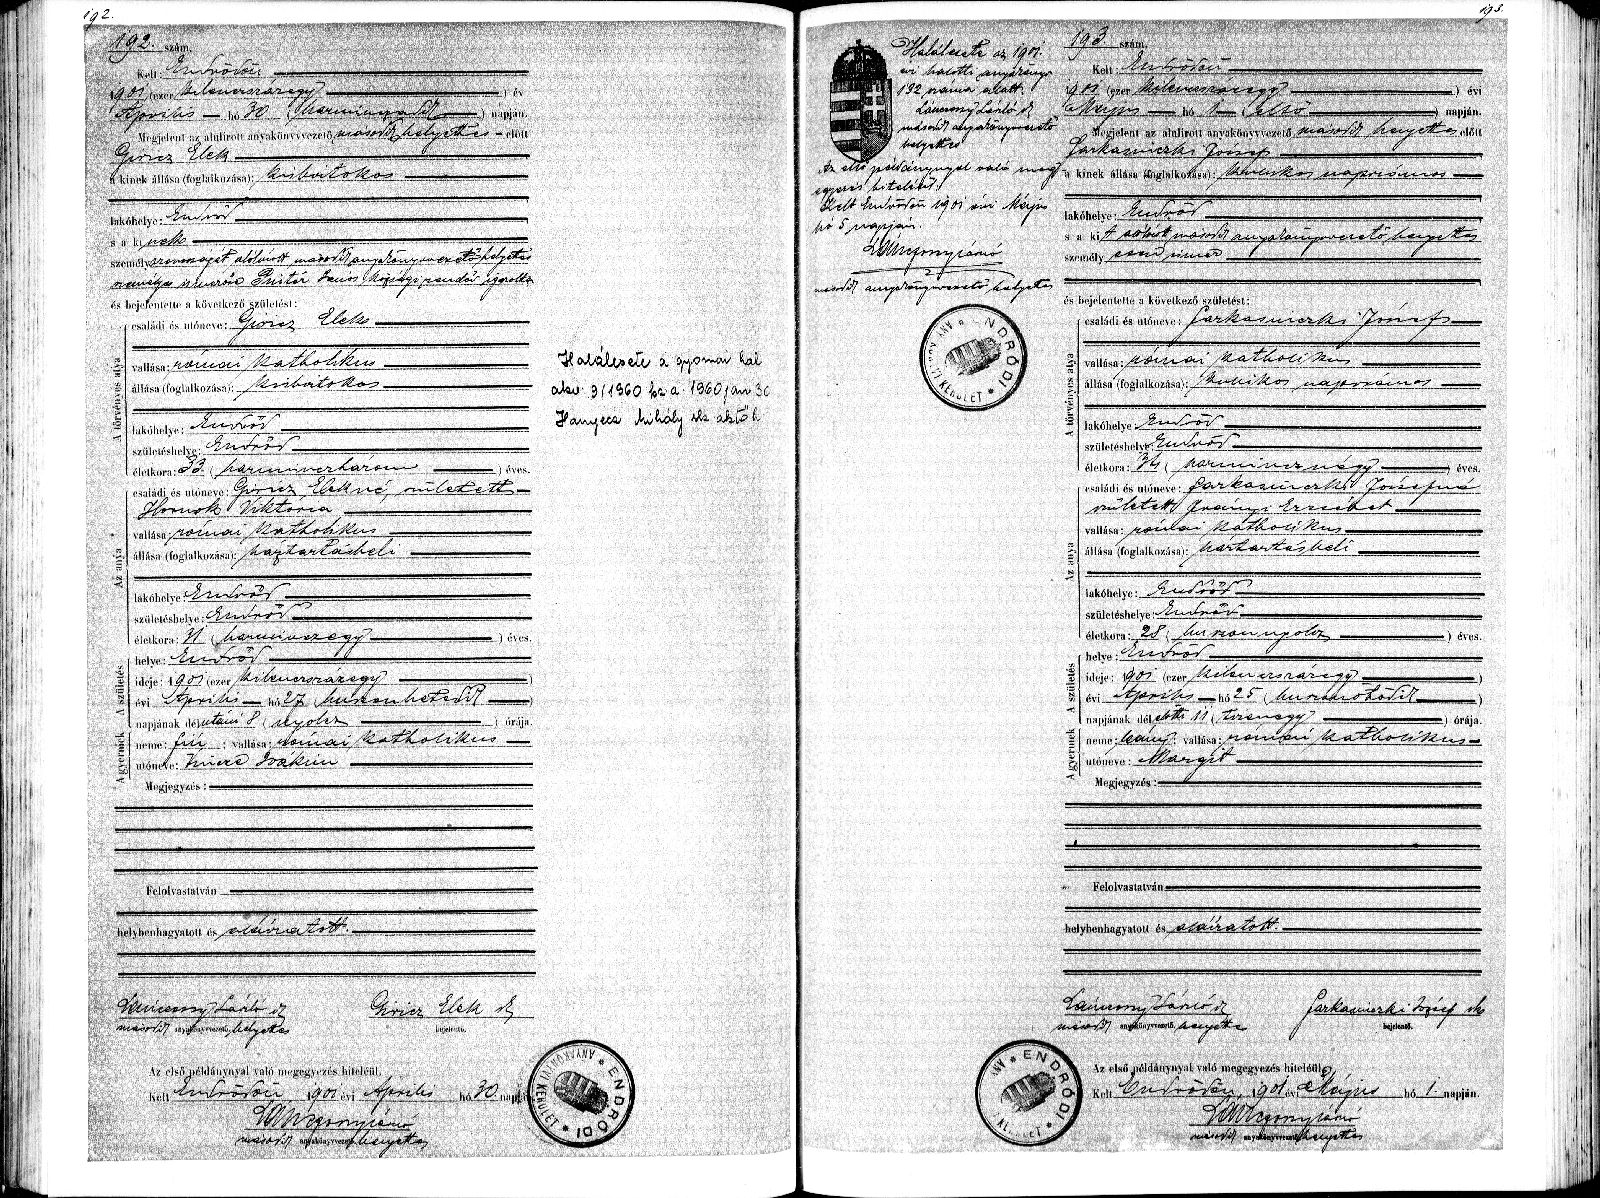 192.
192. szám.
Kelt: Endrődön
1901 (ezer kilencszázegy) év
Április hó 30 (harmincadik) napján.
Megjelent az alulirott anyakönyvvezető, másodt helyettes előtt
Giricz Elek
a kinek állása (foglalkozása): kisbirtokos
lakóhelye: Endrőd
s a ki nek
személyazonosságát alólirott másodt anyakönyvvezető helyettes
személye ismerőse János községi rendőr igazolta
és bejelentette a következő születést:
A törvényes atya
családi és utóneve: Giricz Elek
vallása: római katholikus
állása (foglalkozása): kisbirtokos
lakóhelye: Endrőd
születéshelye: Endrőd
életkora: 33. (harminczhárom) éves.
Az anya
családi és utóneve: Giricz Elekné, született
Hornok Viktoria
vallása: római katholikus
állása (foglalkozása): háztartásbeli
lakóhelye: Endrőd
születéshelye: Endrőd
életkora: 31 (harminczegy) éves.
A születés
helye: Endrőd
ideje: 1901 (ezer kilencszázegy)
évi Április hó 27 (huszonhetedik)
napjának délutáni 8 (nyolcz) órája.
A gyermek
neme: fiú; vallása: római katholikus
utóneve: Vincze
Megjegyzés:
Felolvastatván
helybenhagyatott és aláiratott.
László
másodt anyakönyvvezető, helyettes
Giricz Elek
bejelentő.
Az első példánynyal való megegyezés hiteléül.
Kelt Endrődön, 1901 évi Április hó 30 napján
másodt anyakönyvvezető helyettes
ENDRŐDI ANYAKÖNYVI KERÜLET
Halálesete a gyomai hal
akv. 9/1960 fsz a. 1960 jan 30
Hanyecz Mihály sk aktőh
193.
Halálesete az 1901.
évi halotti anyakönyv
132 száma alatt.
László
másodt anyakönyvvezető
helyettes
Az első példánynyal való meg
egyezés hiteléül.
Kelt Endrődön 1901 évi Május
hó 5 napján.
másodt anyakönyvvezető helyettes
ENDRŐDI ANYAKÖNYVI KERÜLET
193. szám.
Kelt: Endrődön
1901 (ezer kilencszázegy) évi
Május hó 1 (első) napján.
Megjelent az alulirott anyakönyvvezető másodt helyettes előtt
Farkasinszki József
a kinek állása (foglalkozása): kubikos napszámos
lakóhelye: Endrőd
s a kit alólirott másodt anyakönyvvezető helyettes
személyesen ismer
és bejelentette a következő születést:
A törvényes atya
családi és utóneve: Farkasinszki József
vallása: római katholikus
állása (foglalkozása): kubikos napszámos
lakóhelye: Endrőd
születéshelye: Endrőd
életkora: 34 (harmincznégy) éves.
Az anya
családi és utóneve: Farkasinszki Józsefné
született Iványi Erzsébet
vallása: római katholikus
állása (foglalkozása): háztartásbeli
lakóhelye: Endrőd
születéshelye: Endrőd
életkora: 28 (huszonnyolcz) éves.
A születés
helye: Endrőd
ideje: 1901 (ezer kilencszázegy)
évi Április hó 25 (huszonötödik)
napjának délelőtti 11 (tizenegy) órája.
A gyermek
neme: leány; vallása: római katholikus
utóneve: Margit
Megjegyzés:
Felolvastatván
helybenhagyatott és aláiratott.
László
másodt anyakönyvvezető, helyettes
Farkasinszki József
bejelentő.
Az első példánynyal való megegyezés hiteléül.
Kelt Endrődön, 1901 évi Május hó 1. napján.
másodt anyakönyvvezető helyettes
ENDRŐDI ANYAKÖNYVI KERÜLET